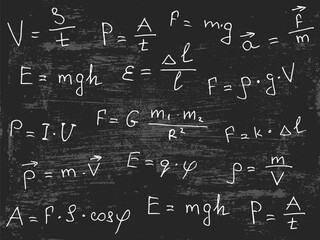 V = S/t P = A/t F = m·g a⃗ = F⃗/m
E = mgh ε = Δl/l F = ρ·g·V
P = I·U F = G m₁·m₂/R² F = k·Δl
p⃗ = m·V⃗ E = q·φ ρ = m/V
A = F·S·cosφ E = mgh P = A/t